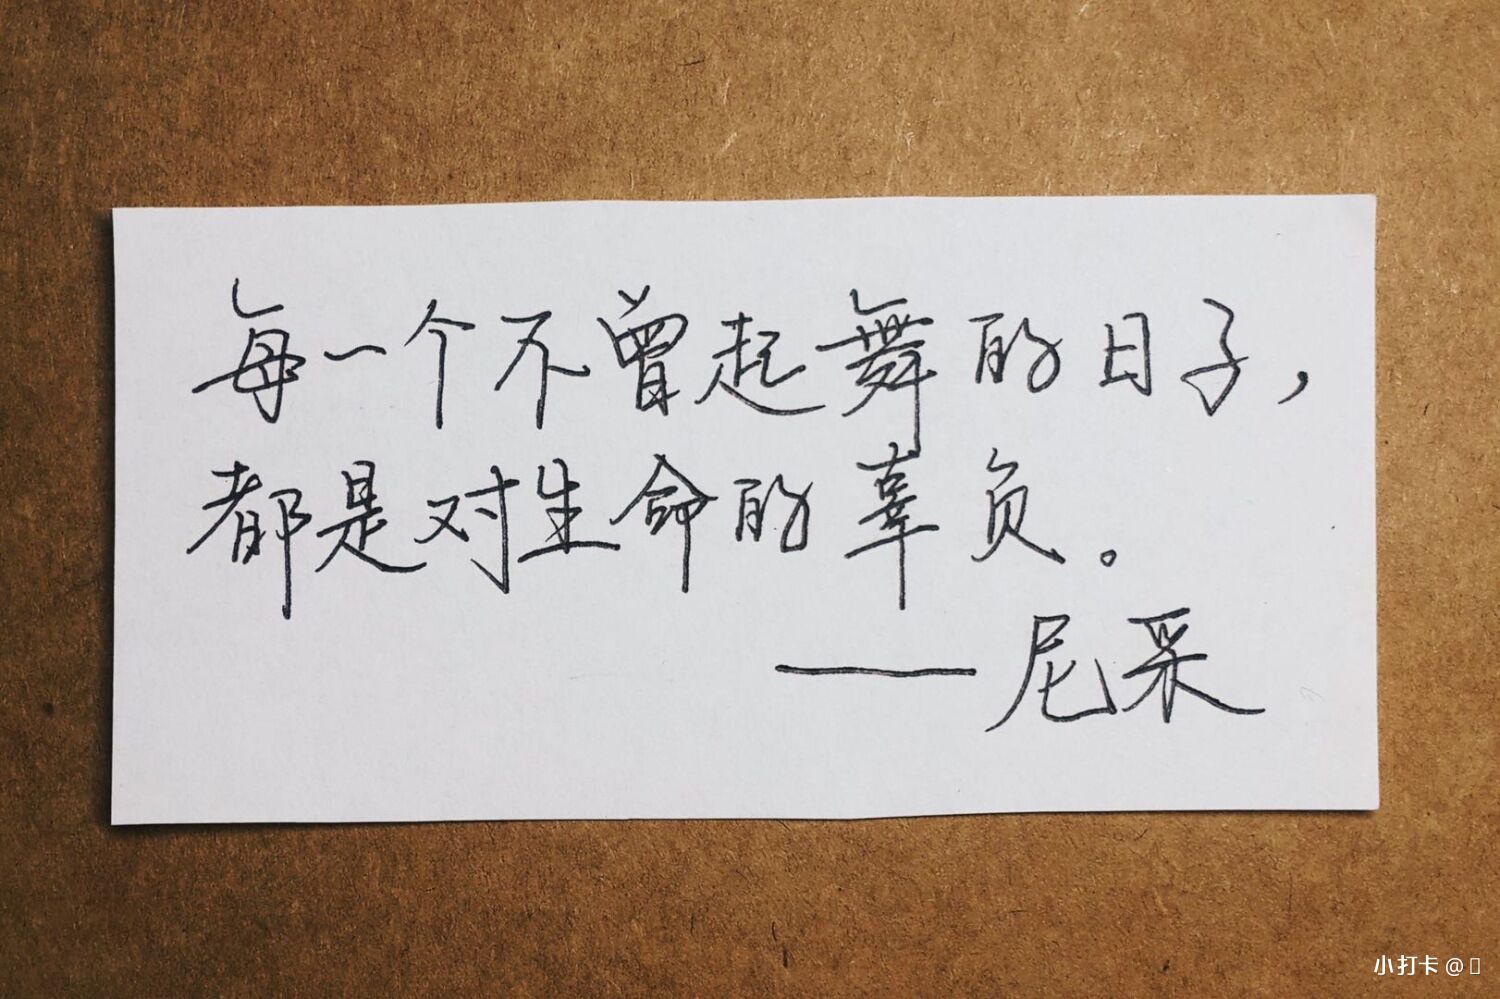 每一个不曾起舞的日子，
都是对生命的辜负。
——尼采
小打卡 @